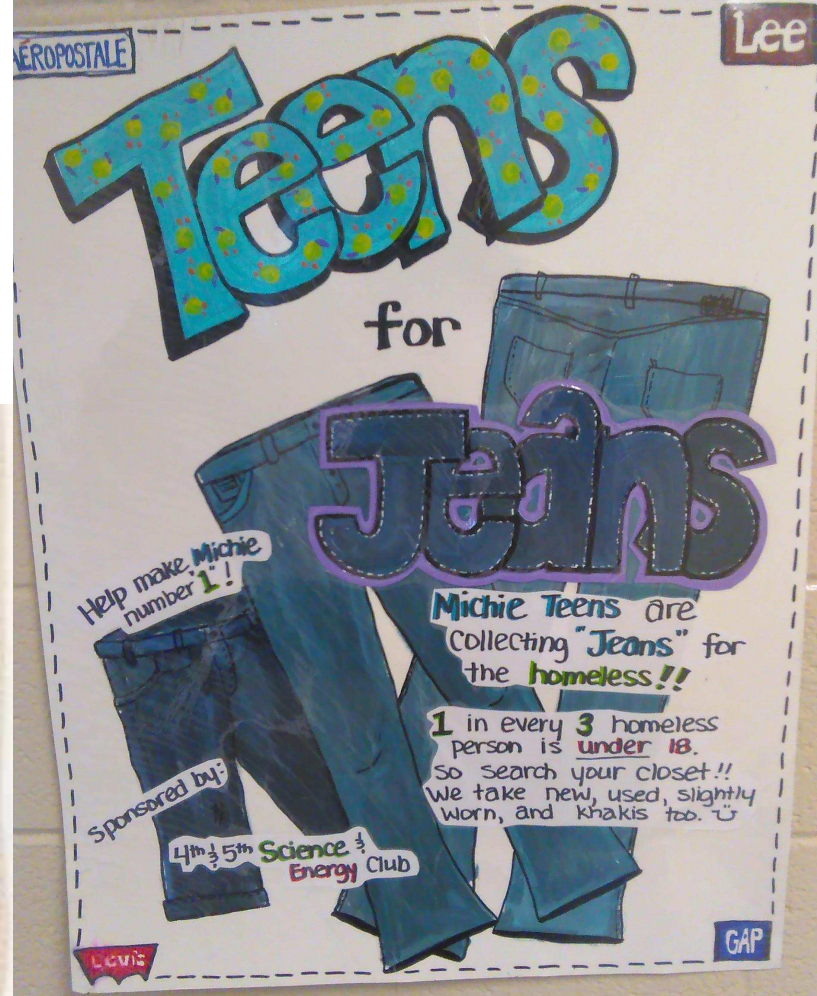 AEROPOSTALE
Lee
Teens
for
Jeans
Help make Michie
number "1"!
Michie Teens are
collecting "Jeans" for
the homeless!!
1 in every 3 homeless
person is under 18.
so search your closet!!
We take new, used, slightly
worn, and khakis too.
Sponsored by:
4th & 5th Science &
Energy Club
Levi's
GAP